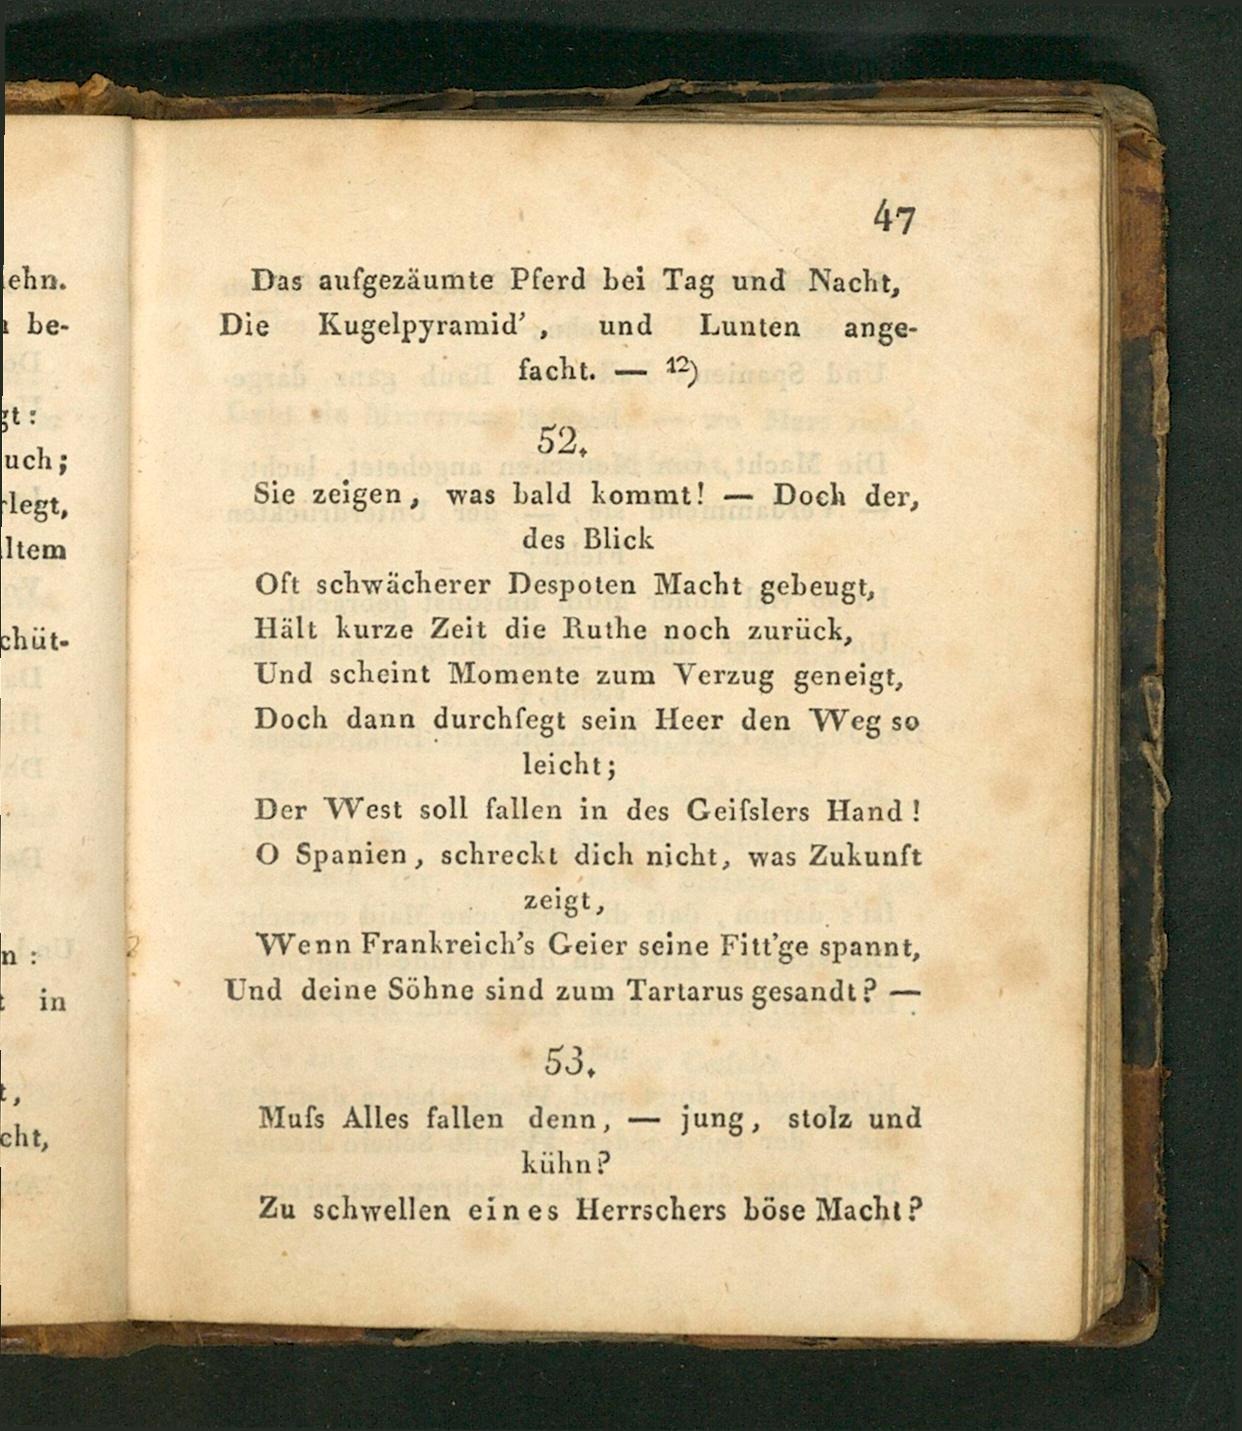 47
Das aufgezäumte Pferd bei Tag und Nacht,
Die Kugelpyramid', und Lunten ange-
facht. — 12)
52.
Sie zeigen, was bald kommt! — Doch der,
des Blick
Oft schwächerer Despoten Macht gebeugt,
Hält kurze Zeit die Ruthe noch zurück,
Und scheint Momente zum Verzug geneigt,
Doch dann durchfegt sein Heer den Weg so
leicht;
Der West soll fallen in des Geiſslers Hand!
O Spanien, schreckt dich nicht, was Zukunft
zeigt,
Wenn Frankreich's Geier seine Fitt'ge spannt,
Und deine Söhne sind zum Tartarus gesandt? —
53.
Muſs Alles fallen denn, — jung, stolz und
kühn?
Zu schwellen eines Herrschers böse Macht?
ehn.
be-
gt:
uch;
rlegt,
ltem
chüt-
n:
in
t,
cht,